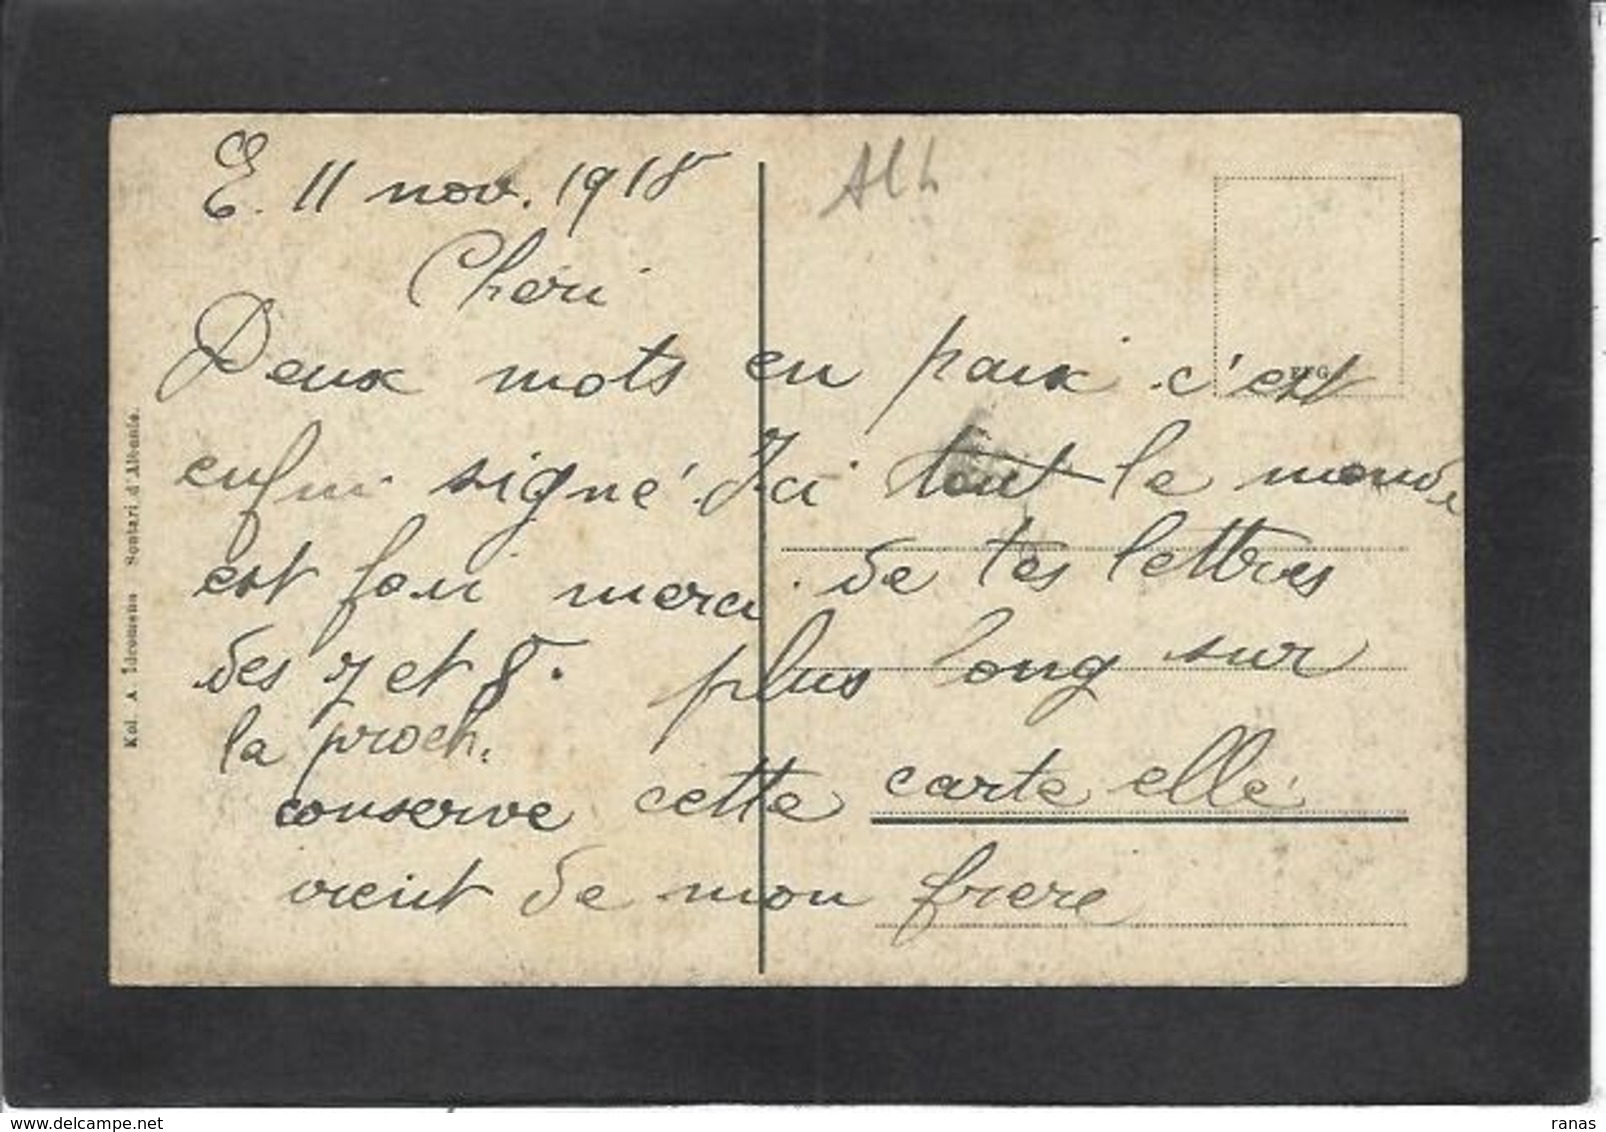 E. 11 nov. 1918
Alb
Cheri
Deux mots en paix c'est
enfin signé. Ici tout le monde
est fou merci de tes lettres
des 7 et 8. plus long sur
la proch.
conserve cette carte elle
vient de mon frere
Kol. A. Idromenu Scutari d'Albanie.
delcampe.net
ranas